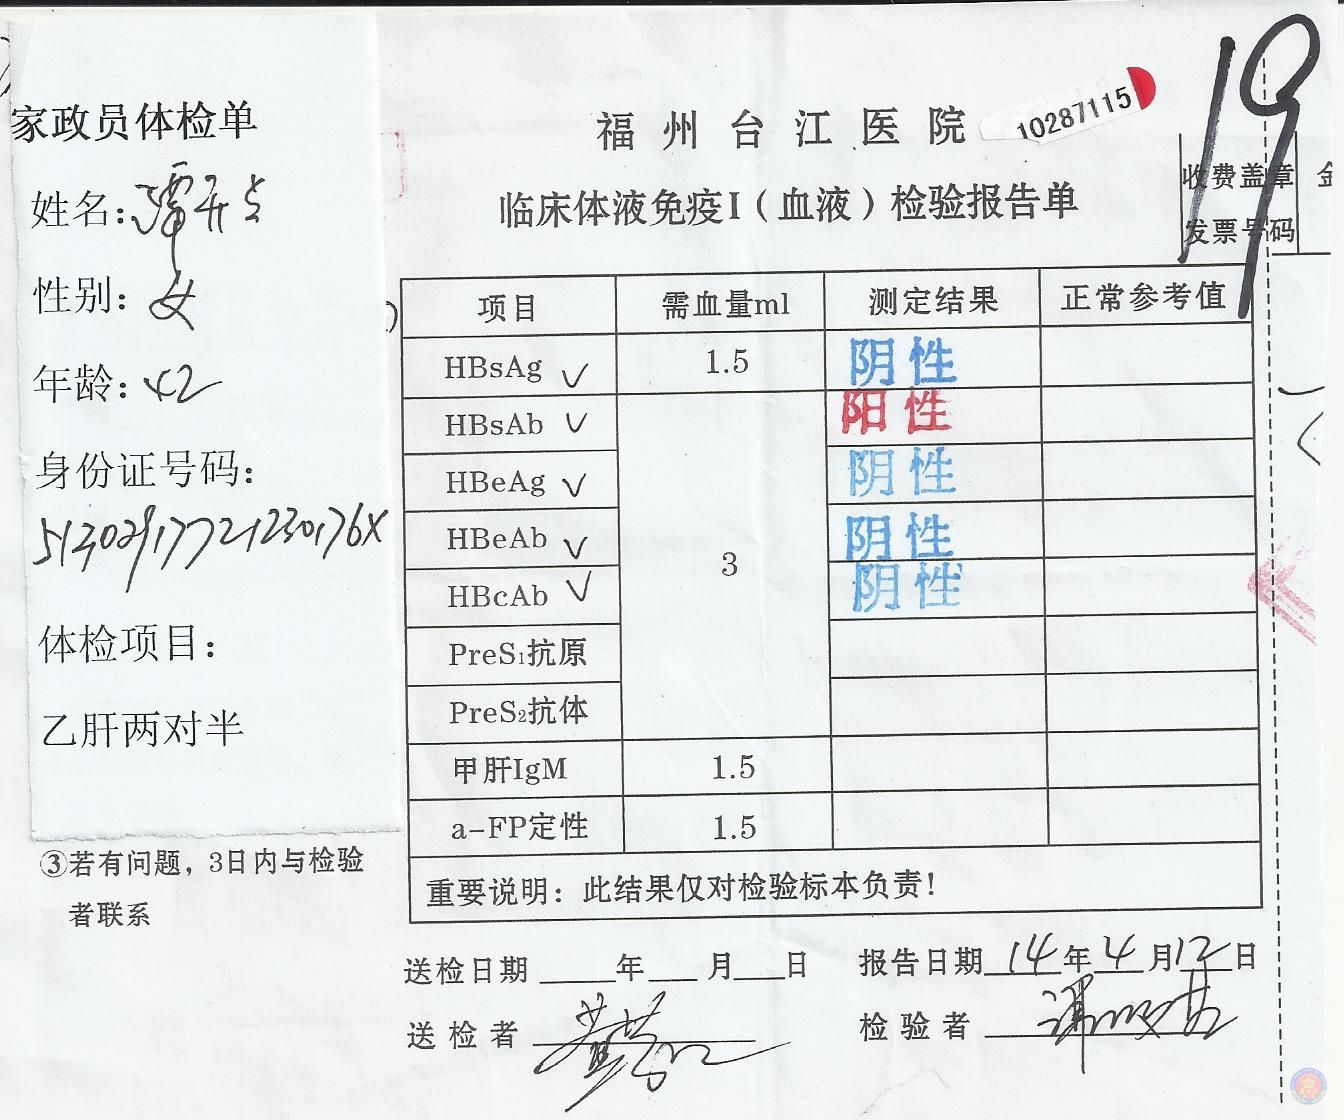 家政员体检单
姓名:
性别: 女
年龄: 42
身份证号码:
体检项目:
乙肝两对半
③若有问题，3日内与检验
者联系
福州台江医院
10287115
19
收费盖章 金
发票号码
临床体液免疫I（血液）检验报告单
项目 需血量ml 测定结果 正常参考值
HBsAg ✓ 1.5 阴性
HBsAb ✓ 阳性
HBeAg ✓ 阴性
HBeAb ✓ 3 阴性
HBcAb ✓ 阴性
PreS₁抗原
PreS₂抗体
甲肝IgM 1.5
a-FP定性 1.5
重要说明：此结果仅对检验标本负责！
送检日期 年 月 日 报告日期 14年4月12日
送检者 检验者